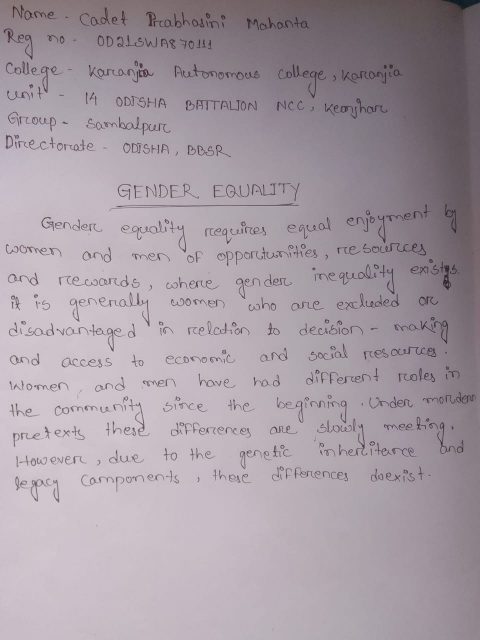 Name - Cadet Prabhasini Mahanta
Reg no - OD21SWA870111
College - Karanjia Autonomous college, Karanjia
Unit - 14 ODISHA BATTALION NCC, Keonjhar
Group - Sambalpur
Directorate - ODISHA, BBSR
GENDER EQUALITY
Gender equality requires equal enjoyment by
women and men of opportunities, resources
and rewards, where gender inequality exists.
it is generally women who are excluded or
disadvantaged in relation to decision - making
and access to economic and social resources.
Women, and men have had different roles in
the community since the beginning. Under mordern
pretexts these differences are slowly meeting.
However, due to the genetic inheritance and
legacy components, these differences do exist.